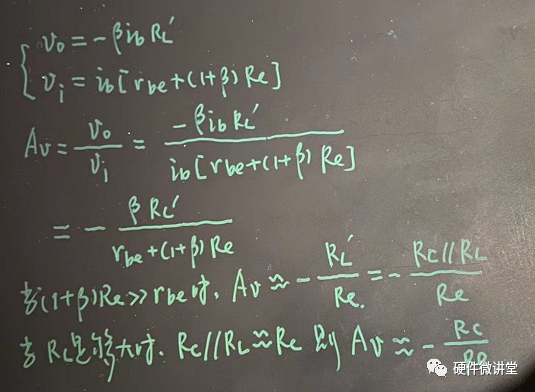 { v₀ = -βib RL'
vi = ib[rbe+(1+β)Re]
Av = v₀/vi = -βib RL' / ib[rbe+(1+β)Re]
= - βRL' / rbe+(1+β)Re
当(1+β)Re>>rbe时, Av ≈ - RL'/Re = - Rc//RL / Re
当RL足够大时, Rc//RL≈Rc 则 Av ≈ - Rc/Re
硬件微讲堂